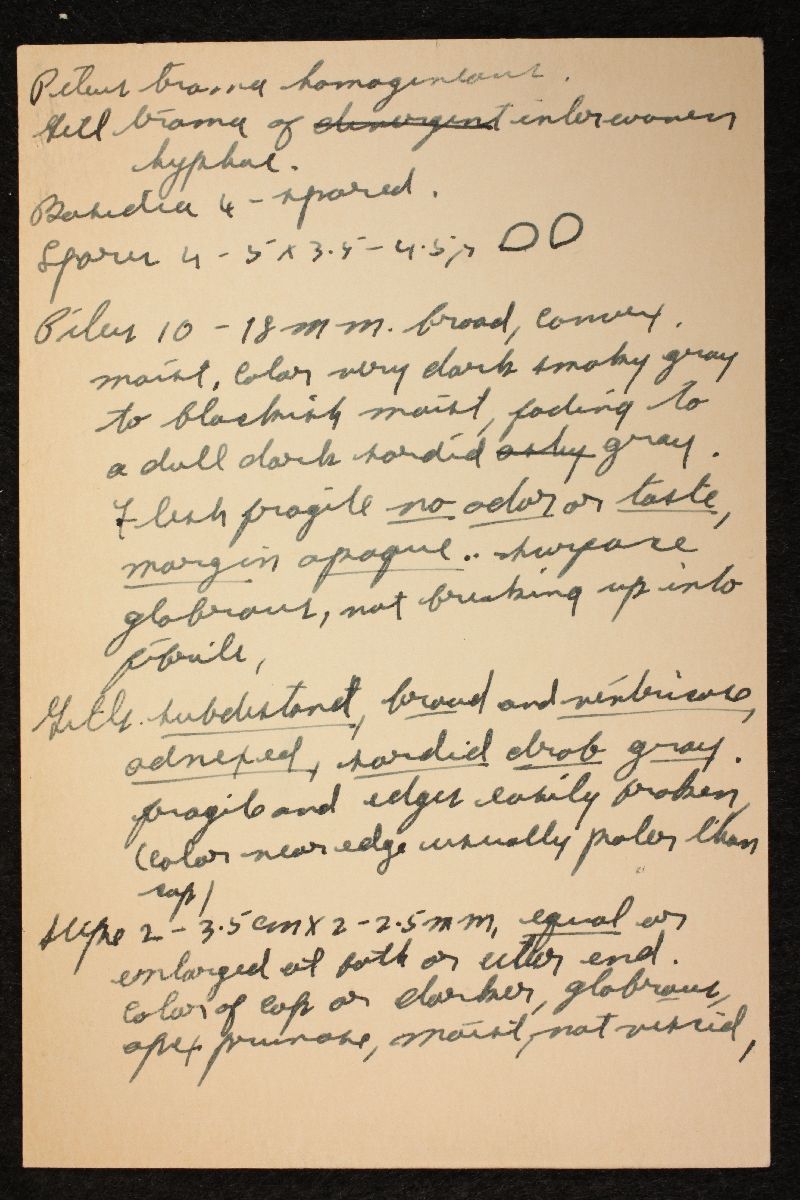 Pileus trama homogeneous.
Gill trama of divergent interwoven
hyphae.
Basidia 4-spored.
Spores 4 - 5 x 3.5 - 4.5 µ
Pileus 10 - 18 m m. broad, convex.
moist, color very dark smoky gray
to blackish moist, fading to
a dull dark sordid ashy gray.
Flesh fragile no odor or taste,
margin opaque.. surface
glabrous, not breaking up into
fibrils,
Gills. subdistant, broad and ventricose,
adnexed, sordid drab gray.
fragile and edges easily broken,
(color near edge usually paler than
cap)
Stipe 2 - 3.5 cm x 2 - 2.5 m m, equal or
enlarged at both or either end.
Color of cap or darker, glabrous,
apex pruinose, moist, not viscid,